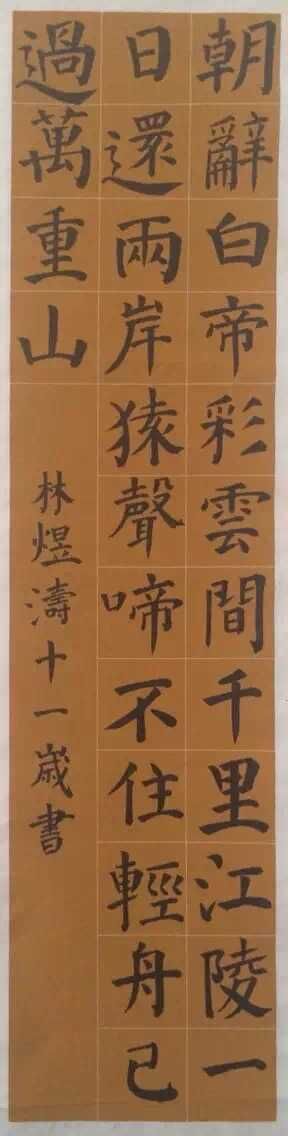 朝辭白帝彩雲間千里江陵一
日還兩岸猿聲啼不住輕舟已
過萬重山
林煜濤十一歲書